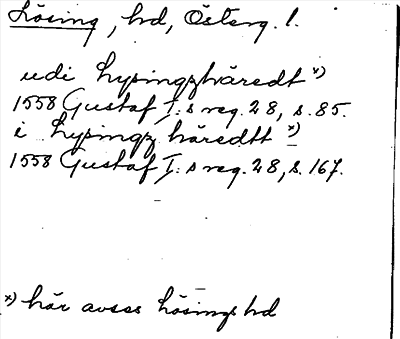 Lösing, hd, Österg. l.
udi Lysingzhäredt x)
1558 Gustaf I:s reg. 28, s. 85.
i Lysingz häredtt x)
1558 Gustaf I:s reg. 28, s. 167.
x) här avses Lösings hd